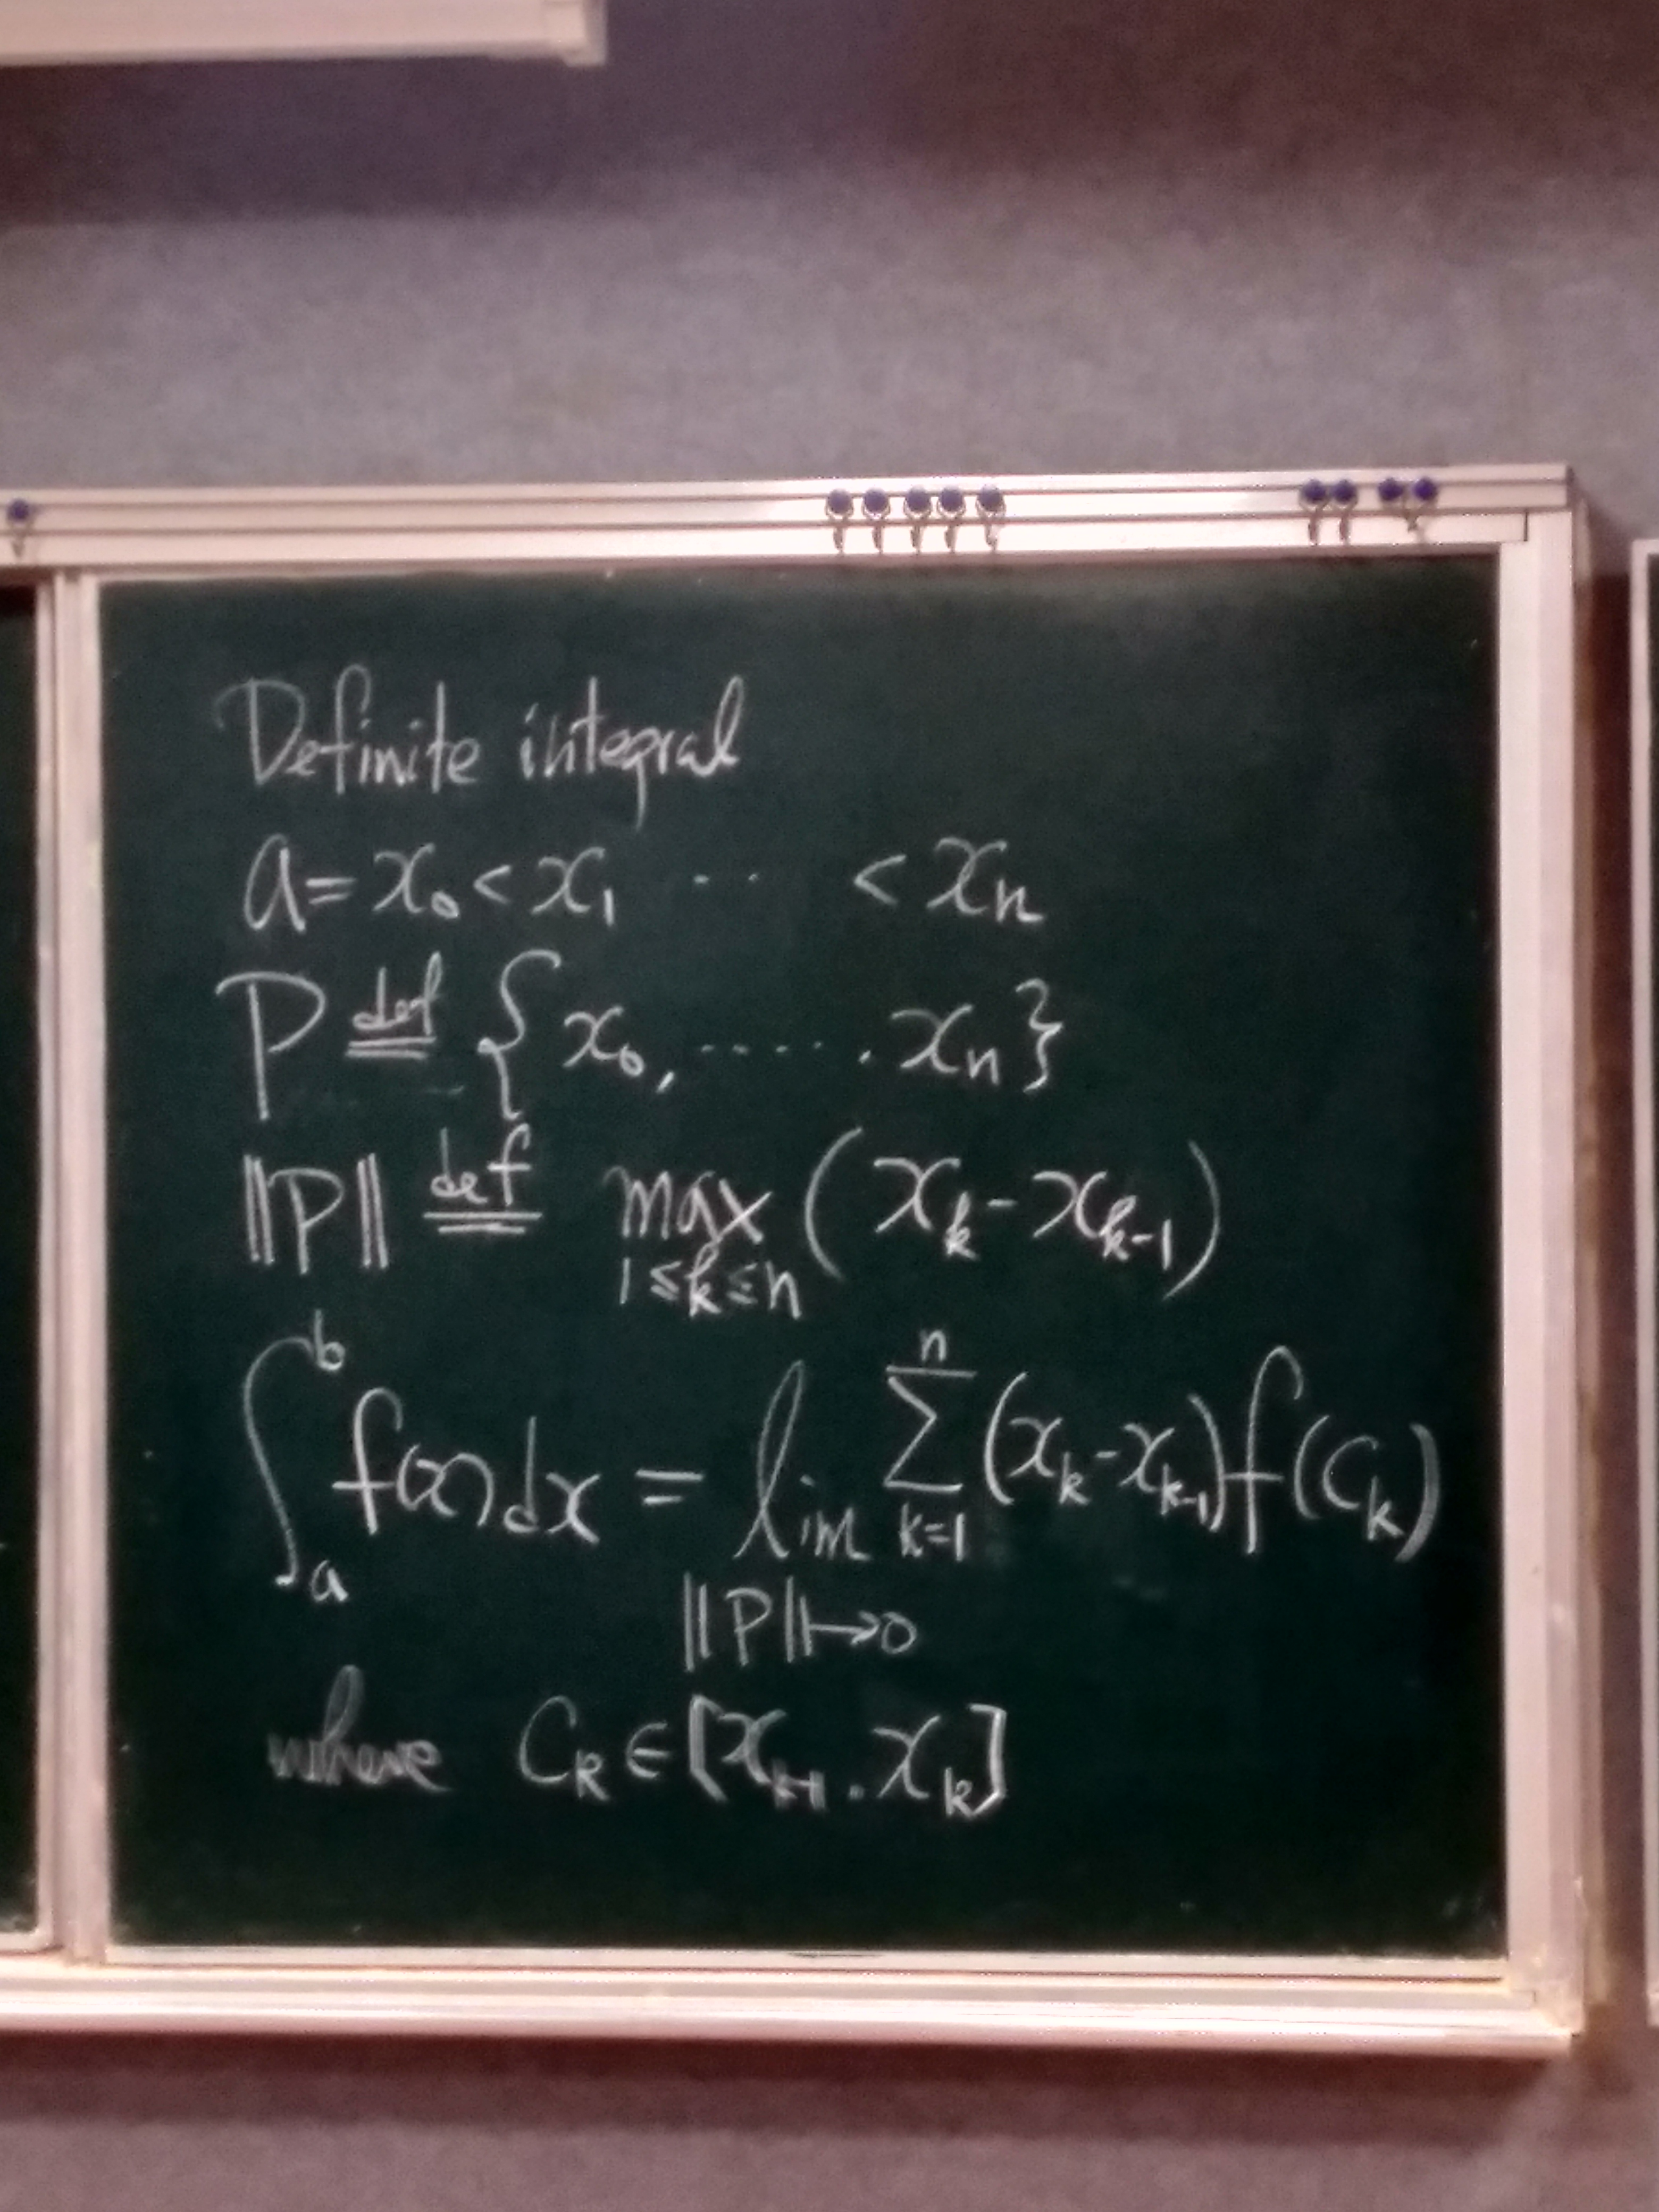 Definite integral
a = x₀ < x₁ ·· < xₙ
P def= { x₀, ······ . xₙ }
‖P‖ def= max 1≤k≤n ( xₖ - xₖ₋₁ )
∫ₐᵇ f(x) dx = lim ‖P‖↦0 ∑ₖ₌₁ⁿ (xₖ - xₖ₋₁) f(cₖ)
where Cₖ ∈ [xₖ₋₁ . xₖ]